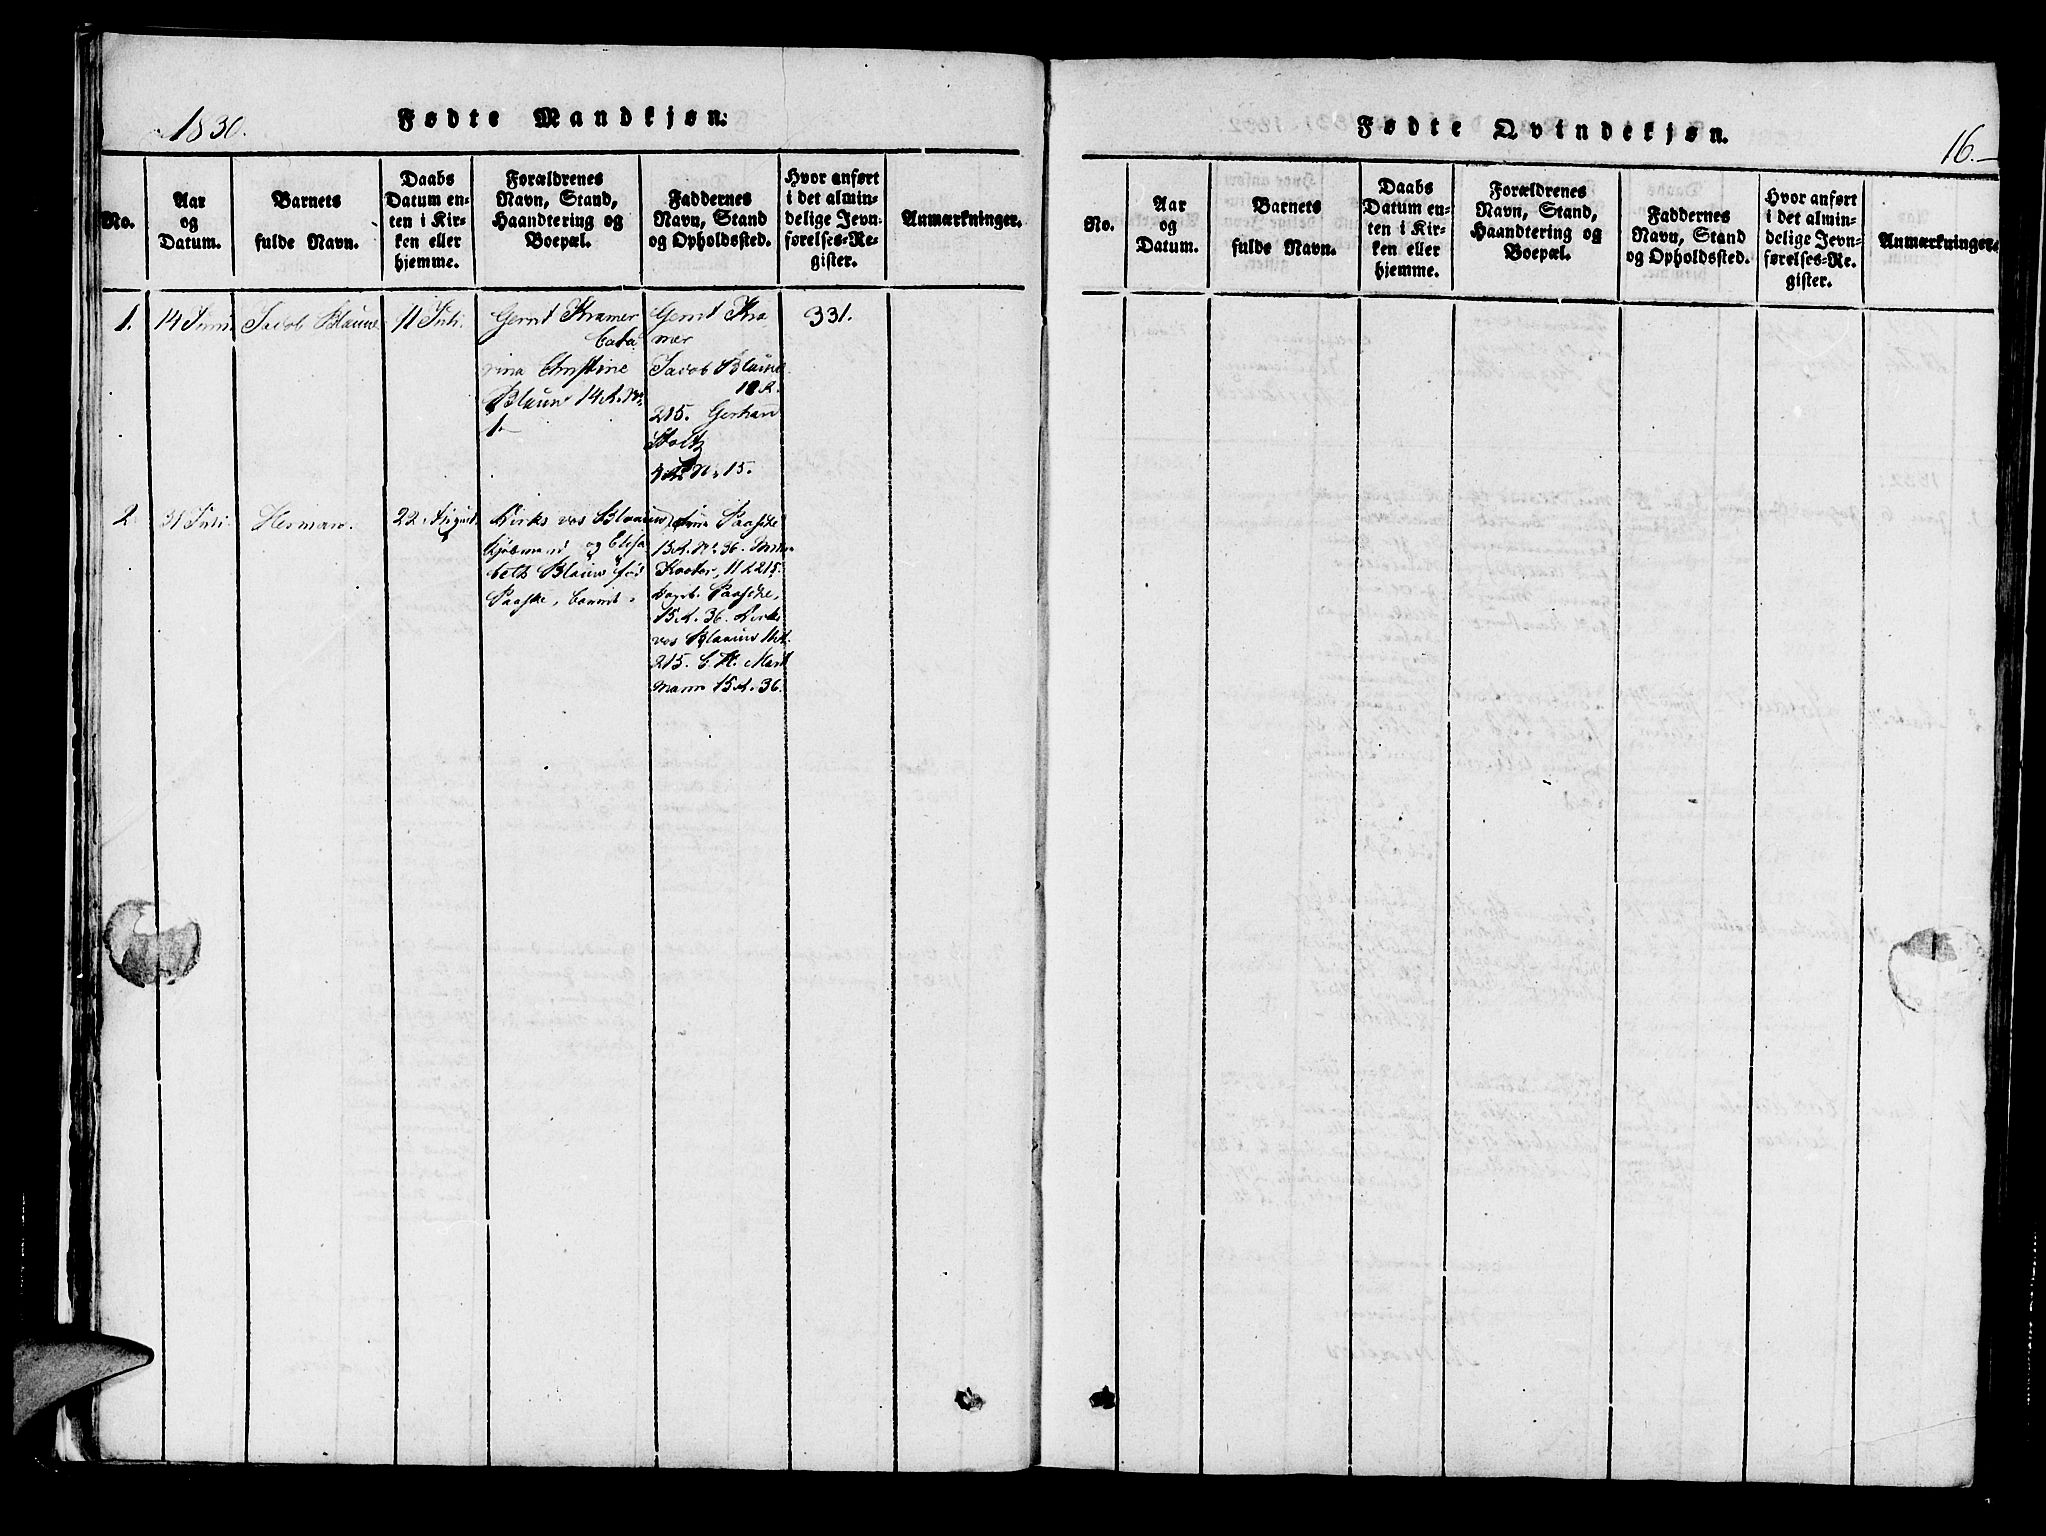 1830.
Fødte Mandkjøn:
No.
Aar
og
Datum.
Barnets
fulde Navn.
Daabs
Datum en-
ten i Kir-
ken eller
hjemme.
Forældrenes
Navn, Stand,
Haandtering og
Boepæl.
Faddernes
Navn, Stand
og Opholdssted.
Hvor anført
i det almin-
delige Jevn-
førelses-Re-
gister.
Anmærkninger.
1.
14 Juni.
Jacob Blauw
11 Juli.
Gernt Kramer
Cata
rina Christine
Blauw 14 A. No
1.
Gernt Kra
mer
Jacob Blauw
1 A.
215. Gerhan
Holtz
4 A. No 15.
331.
2
31 Juli.
Herman.
22 August.
Dirks vos Blaauw
Kjøbmand og Elisa
beth Blauw fød
Paaske,
Paaske
15 A. No 36.
Koster, 11 A 215.
Paaske,
15 A. 36. Dirks
vos Blaauw 11 A.
215. C. H. Mart
mann 15 A. 36.
Fødte Qvindekjøn.
16.
No.
Aar
og
Datum.
Barnets
fulde Navn.
Daabs
Datum en-
ten i Kir-
ken eller
hjemme.
Forældrenes
Navn, Stand,
Haandtering og
Boepæl.
Faddernes
Navn, Stand
og Opholdssted.
Hvor anført
i det almin-
delige Jevn-
førelses-Re-
gister.
Anmærkninger.